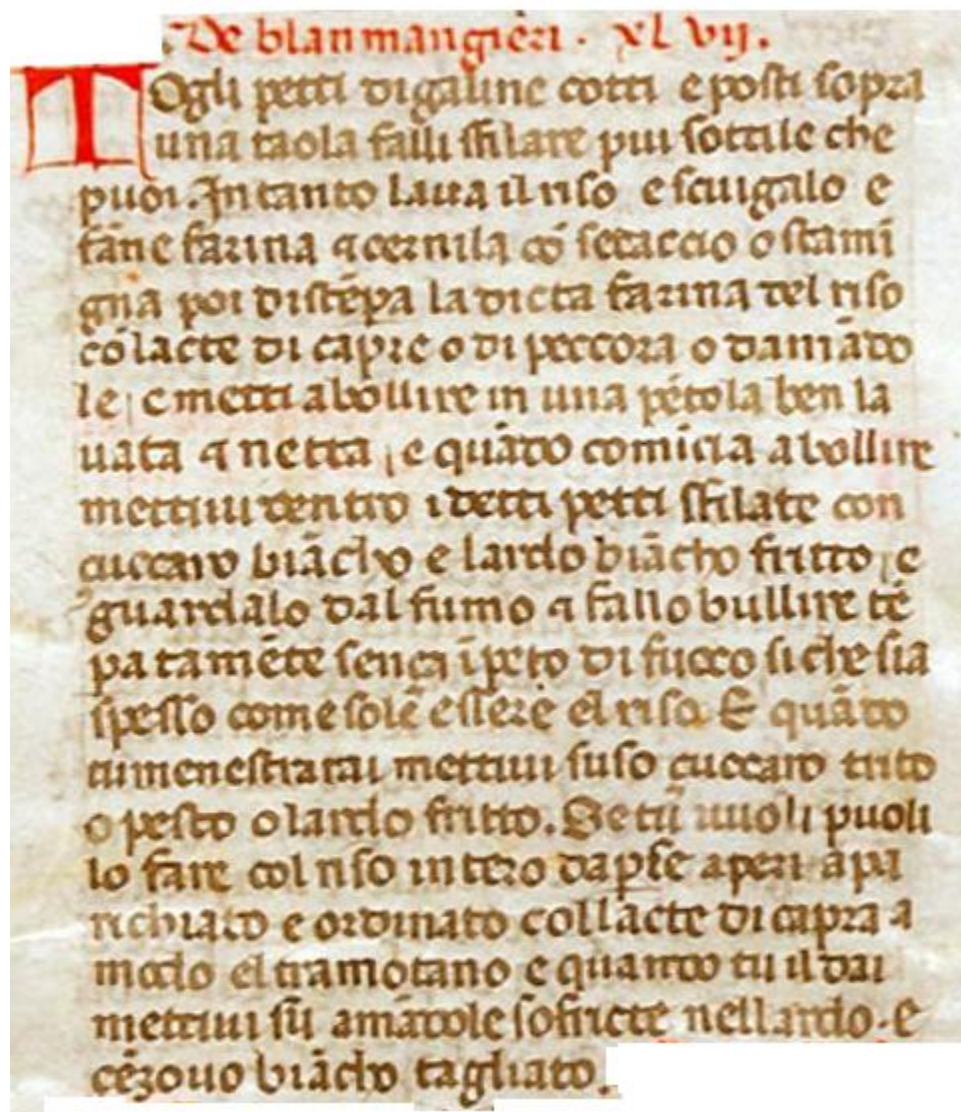 De blanmangieri · xlvij.
Togli petti di galine cotti e posti sopra
una taola falli sfilare piu sottile che
puoi. Intanto laua il riso e sciugalo e
fāne farina ⁊ cernila cō setaccio o stamī
gna poi distēpa la dicta farina del riso
cō lacte di capre o di peccora o damādo
le, e metti a bollire in una pētola ben la
uata ⁊ netta, e quādo comīcia a bollire
mettiui dentro i detti petti sfilate con
çuccaro biācho e lardo biācho fritto, e
guardalo dal fumo ⁊ fallo bullire tē
patamēte sença īpeto di fuoco si che sia
spesso come solē essere el riso. E quādo
tu menestrarai mettiui suso çuccaro trito
o pesto o lardo fritto. Se tu uuoli puoli
lo fare col riso intero da p se apari apa
richiato e ordinato col lacte di capra a
modo el tramotano e quando tu il dai
mettiui sū amādole sofricte nel lardo · e
cēzouo biācho tagliato.